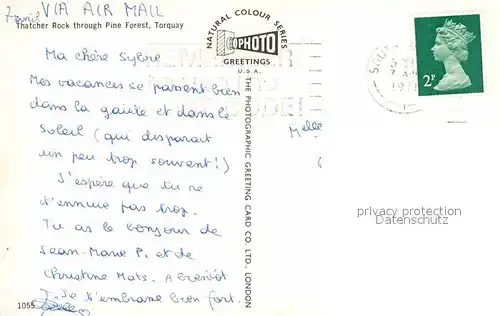 7 avril VIA AIR MAIL
Thatcher Rock through Pine Forest, Torquay
NATURAL COLOUR SERIES
PHOTO
GREETINGS
U.S.A.
THE PHOTOGRAPHIC GREETING CARD CO. LTD., LONDON
Ma chère
Mes vacances se passent bien
dans la gaieté et dans le
Soleil (qui disparait
un peu trop souvent!)
J'espère que tu ne
t'ennuie pas trop.
Tu as le bonjour de
Jean-Marie P. et de
Christine Mats. A bientôt
Je t'embrasse bien fort.
1055
Melle
2P
privacy protection
DDDDDDDD